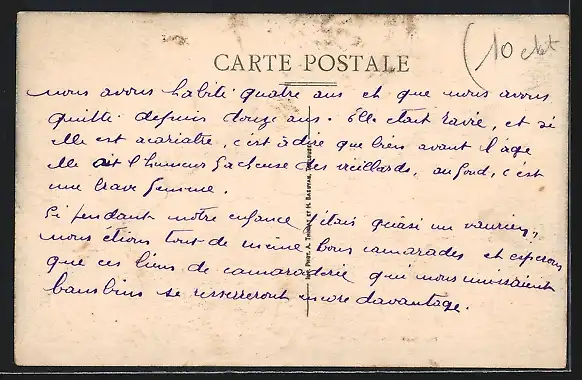 (10 
CARTE POSTALE
nous avons habité quatre ans et que nous avons
quitté depuis douze ans. Elle était ravie, et si
elle est acariatre, c'est à dire que bien avant l'age
elle ait l'humeur facheuse des vieillards, au fond, c'est
une brave femme.
Si pendant notre enfance j'étais quasi un vaurien,
nous étions tout de même bons camarades et espérons
que ces liens de camaraderie qui nous unissaient
bambins se resserreront encore davantage.